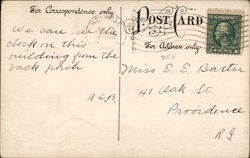 For Correspondence only
POST CARD
For Address only
We can see the
clock on this
building from the
back porch
R. L. B.
Miss E. E. Baxter
41 Oak St.
Providence
R I